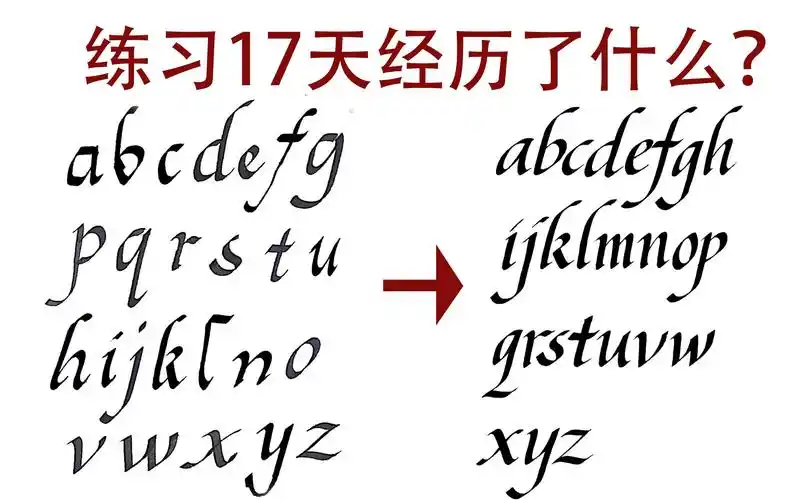 练习17天经历了什么?
abcdefg
pqrstu
hijklno
vwxyz
abcdefgh
ijklmnop
qrstuvw
xyz